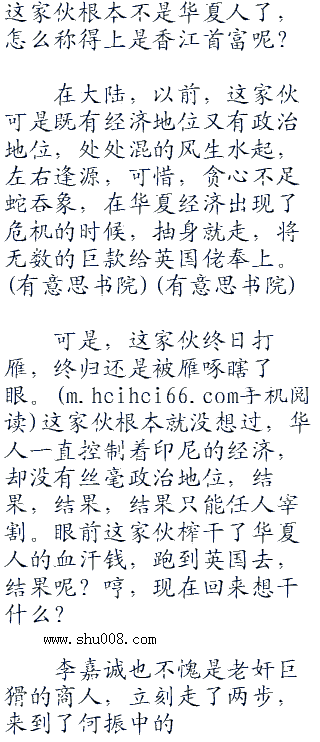 这家伙根本不是华夏人了，
怎么称得上是香江首富呢？
在大陆，以前，这家伙
可是既有经济地位又有政治
地位，处处混的风生水起，
左右逢源，可惜，贪心不足
蛇吞象，在华夏经济出现了
危机的时候，抽身就走，将
无数的巨款给英国佬奉上。
(有意思书院)(有意思书院)
可是，这家伙终日打
雁，终归还是被雁啄瞎了
眼。(m.hcihci66.com手机阅
读)这家伙根本就没想过，华
人一直控制着印尼的经济，
却没有丝毫政治地位，结
果，结果，结果只能任人宰
割。眼前这家伙榨干了华夏
人的血汗钱，跑到英国去，
结果呢？哼，现在回来想干
什么？
www.shu008.com
李嘉诚也不愧是老奸巨
猾的商人，立刻走了两步，
来到了何振中的